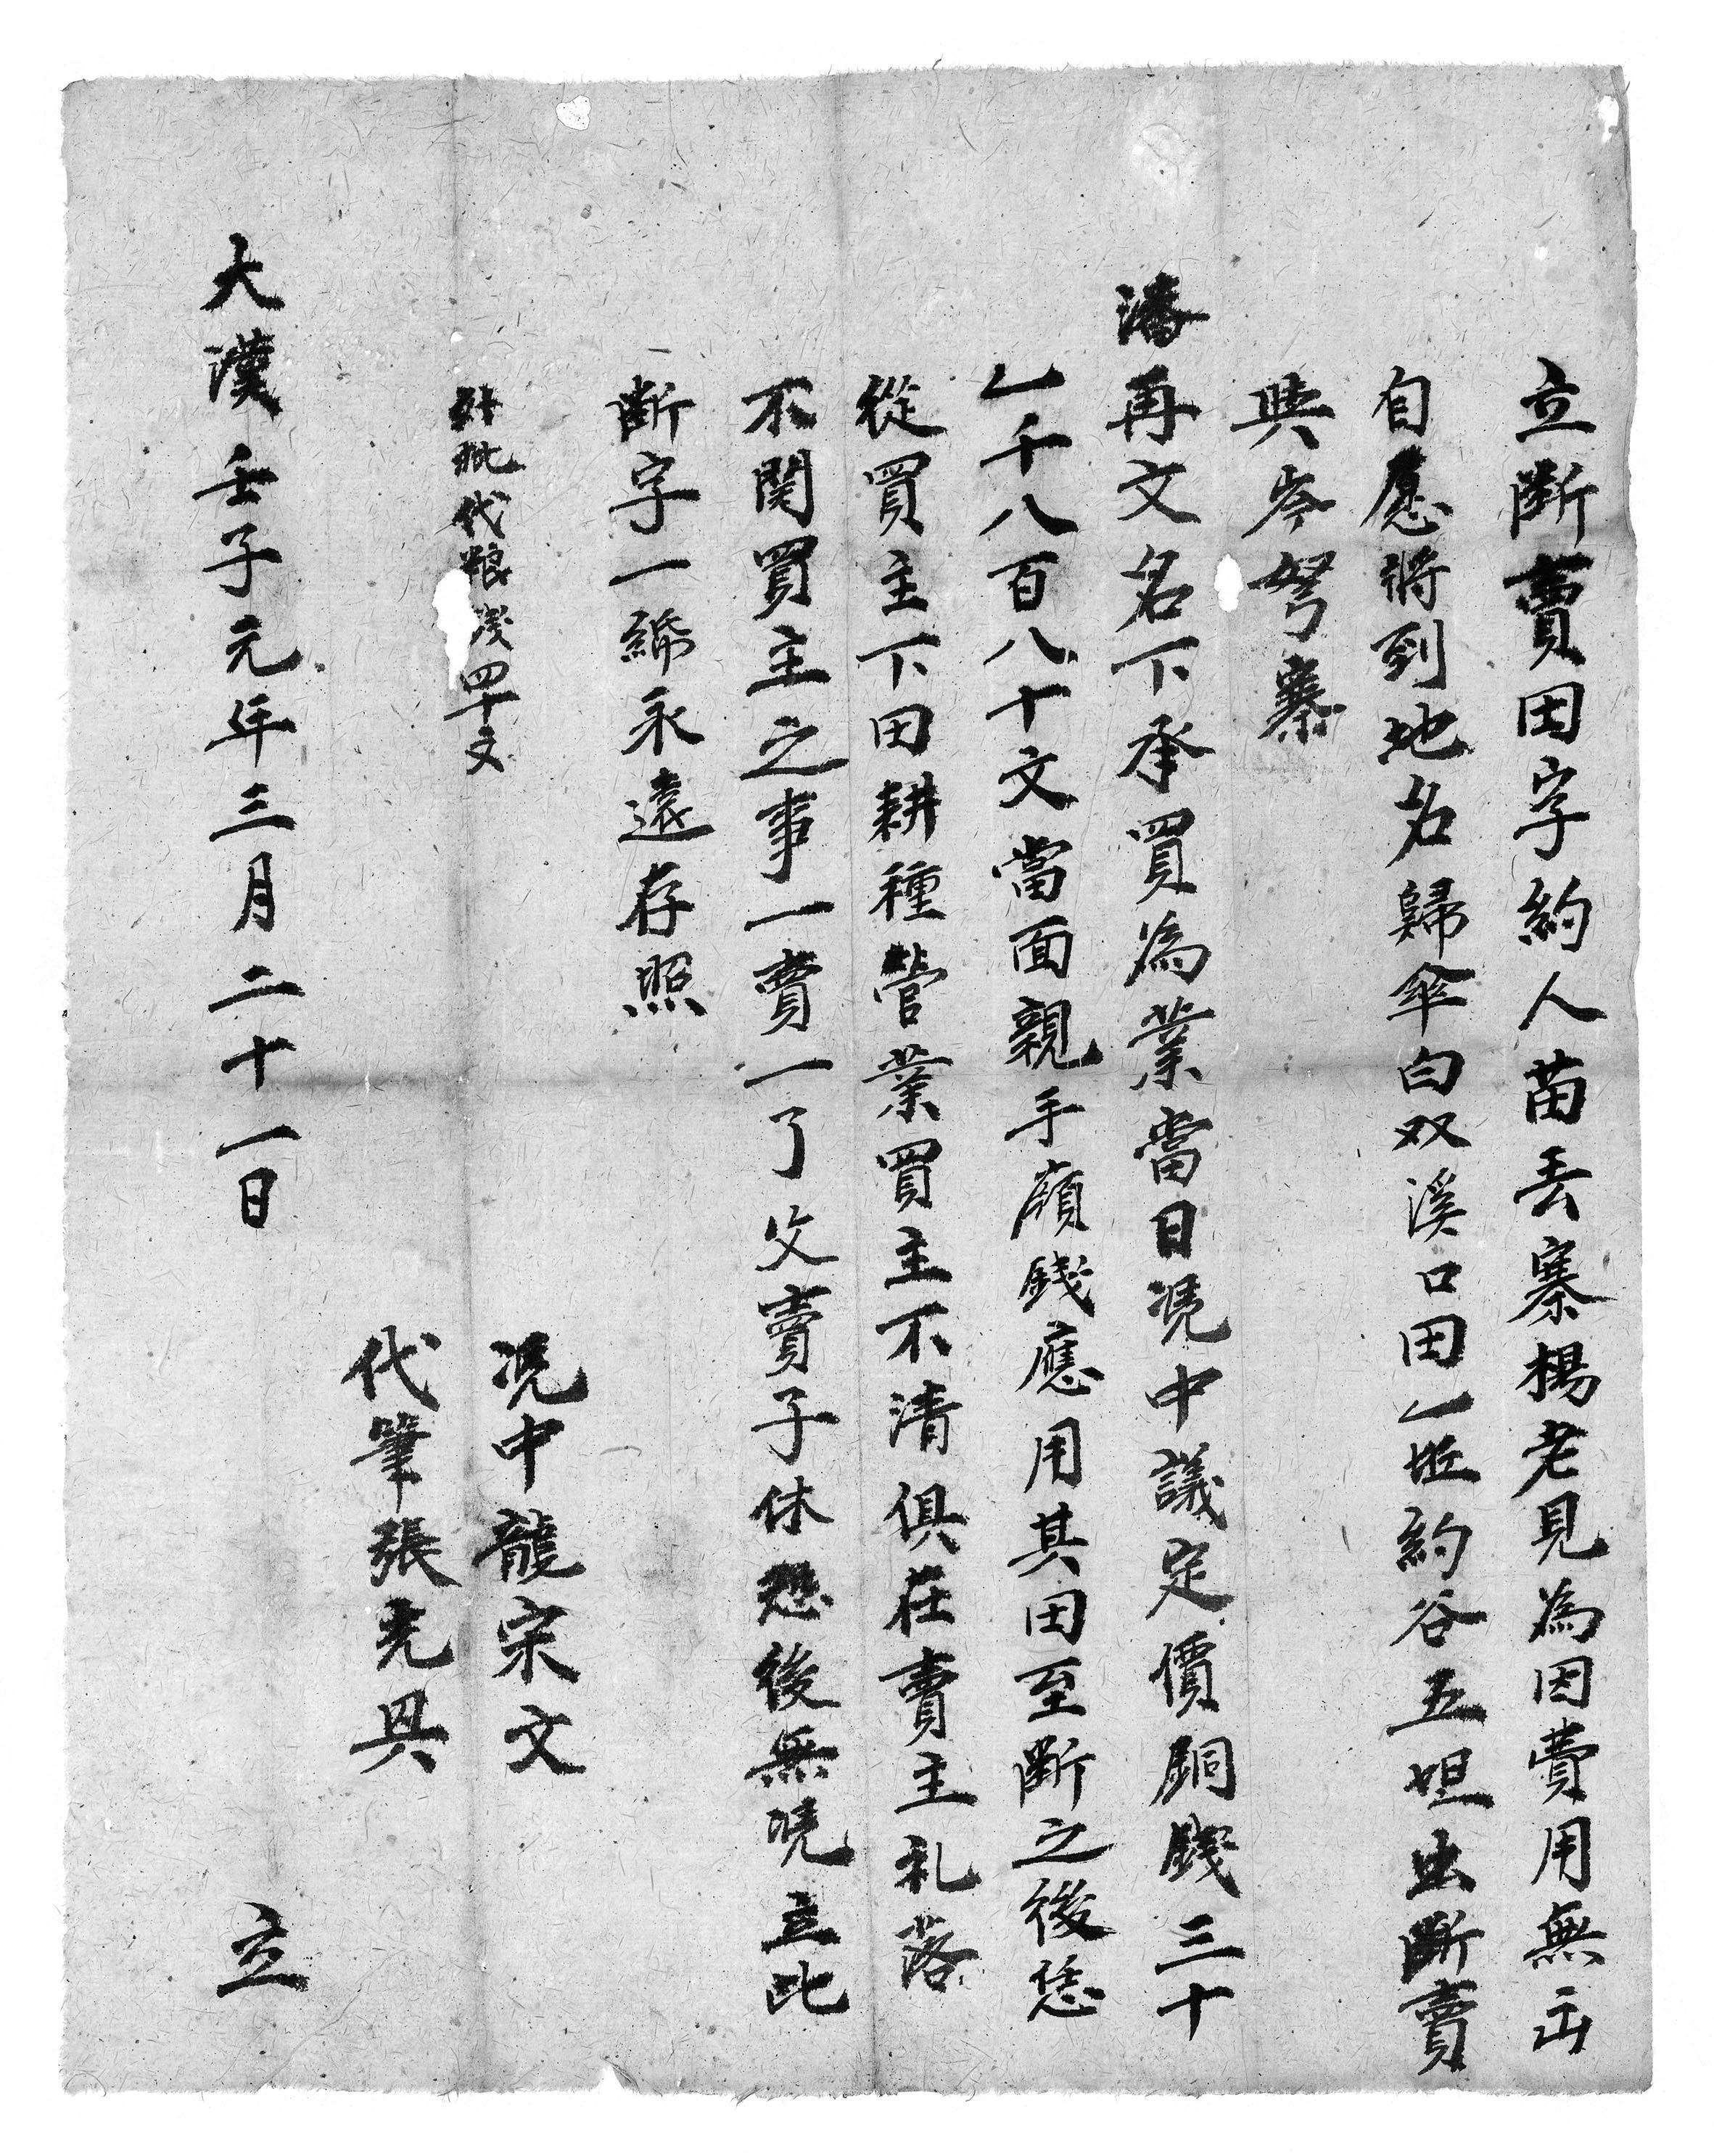 立斷賣田字約人苗丢寨楊老見為因費用無出
自愿將到地名歸傘白双溪口田一坵約谷五担出斷賣
與岑努寨
潘再文名下承買為業當日凴中議定價銅錢三十
乙千八百八十文當面親手領錢應用其田至斷之後恁
從買主下田耕種管業買主不清俱在賣主礼落
不関買主之事一賣一了父賣子休恐後無凴立此
斷字一紙永遠存照
外批代粮錢四十文
凴中龍宋文
代筆張光具
大漢壬子元年三月二十一日 立